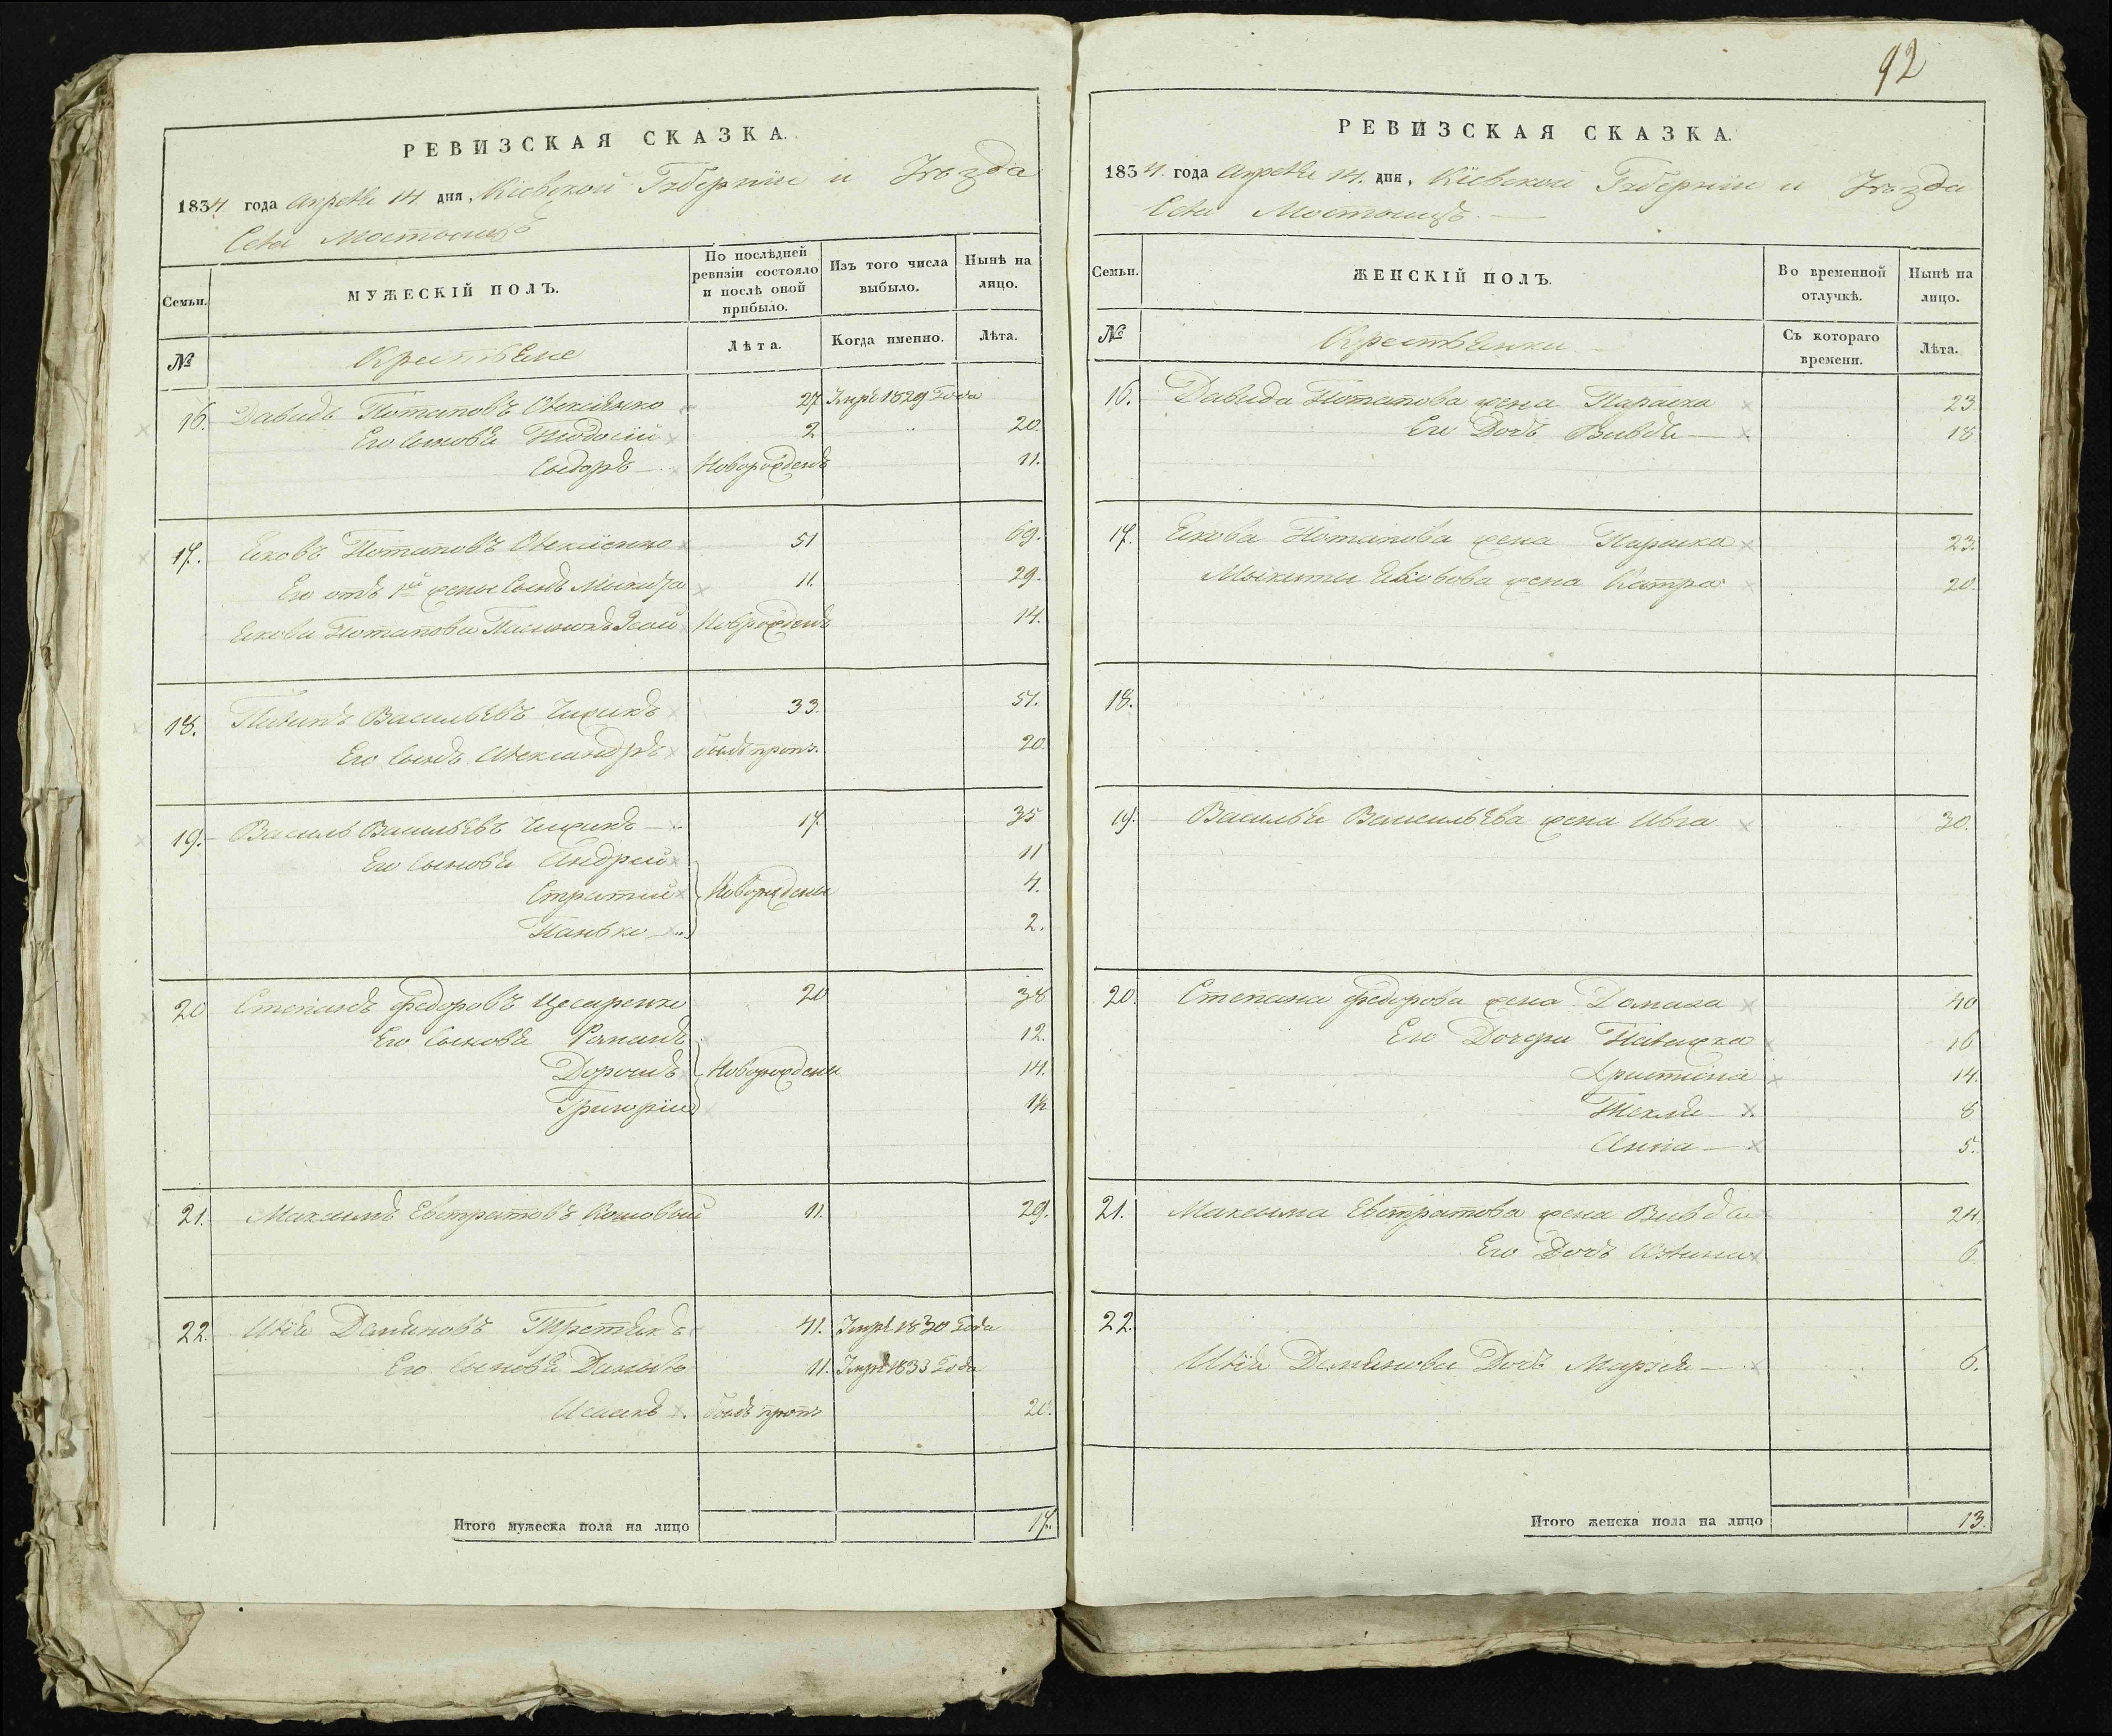 92
РЕВИЗСКАЯ СКАЗКА.
1834 года Апреля 14 дня, Кіевской Губерніи и Уѣзда
Села Мостыщъ
Семьи.
МУЖЕСКІЙ ПОЛЪ.
По послѣдней ревизіи состояло и послѣ оной прибыло.
Изъ того числа выбыло.
Нынѣ на лицо.
№
Крестьяне
Лѣта.
Когда именно.
Лѣта.
16. Давидъ Потаповъ 27 Умре 1829 Года
Его Сыновья Θеодосій 2 20
Сыдоръ Новорожденъ 11.
17. Яковъ Потаповъ 51 69.
Его отъ 1й жены Сынъ Мыкита 11. 29.
Якова Потапова Новорожденъ 14.
18. Пилипъ Васильевъ Чижикъ 33. 51.
Его Сынъ Александръ былъ проп. 20
19. Василь Васильевъ Чижикъ 17. 35
Его Сыновья Андрей 11
Стратій Новорождены 4.
Панько 2.
20 Степанъ Федоровъ Цесаренко 20 38
Его Сыновья Романъ 12.
Дорошъ Новорождены 14.
Григорій
21. Максимъ Евстратовъ Кошовый 11. 29.
22. Илія Демяновъ Третякъ 41. Умре 1830 Года
Его Сыновья Даныло 11. Умре 1833 Года
Исаакъ былъ проп. 20.
Итого мужеска пола на лицо 17.
РЕВИЗСКАЯ СКАЗКА.
1834. года Апреля 14. дня, Кіевской Губерніи и Уѣзда
Села Мостыщъ.
Семьи.
ЖЕНСКІЙ ПОЛЪ.
Во временной отлучкѣ.
Нынѣ на лицо.
№
Крестьянки
Съ котораго времени.
Лѣта.
16. Давида Потапова жена Параска 23
Его Дочь Вивдя 18
17. Якова Потапова жена Параска 23.
Мыкиты Яковова жена Катра 20.
18.
19. Василья Васильева жена Ивга 30.
20. Степана Федорова жена Домаха 40
Его Дочери Палажка 16
Христина 14.
Текля 8
Анна 5.
21. Максима Евстратова жена Вивдя 24.
Его Дочь 6
22.
Илія Демянова Дочь Марья 6.
Итого женска пола на лицо 13.